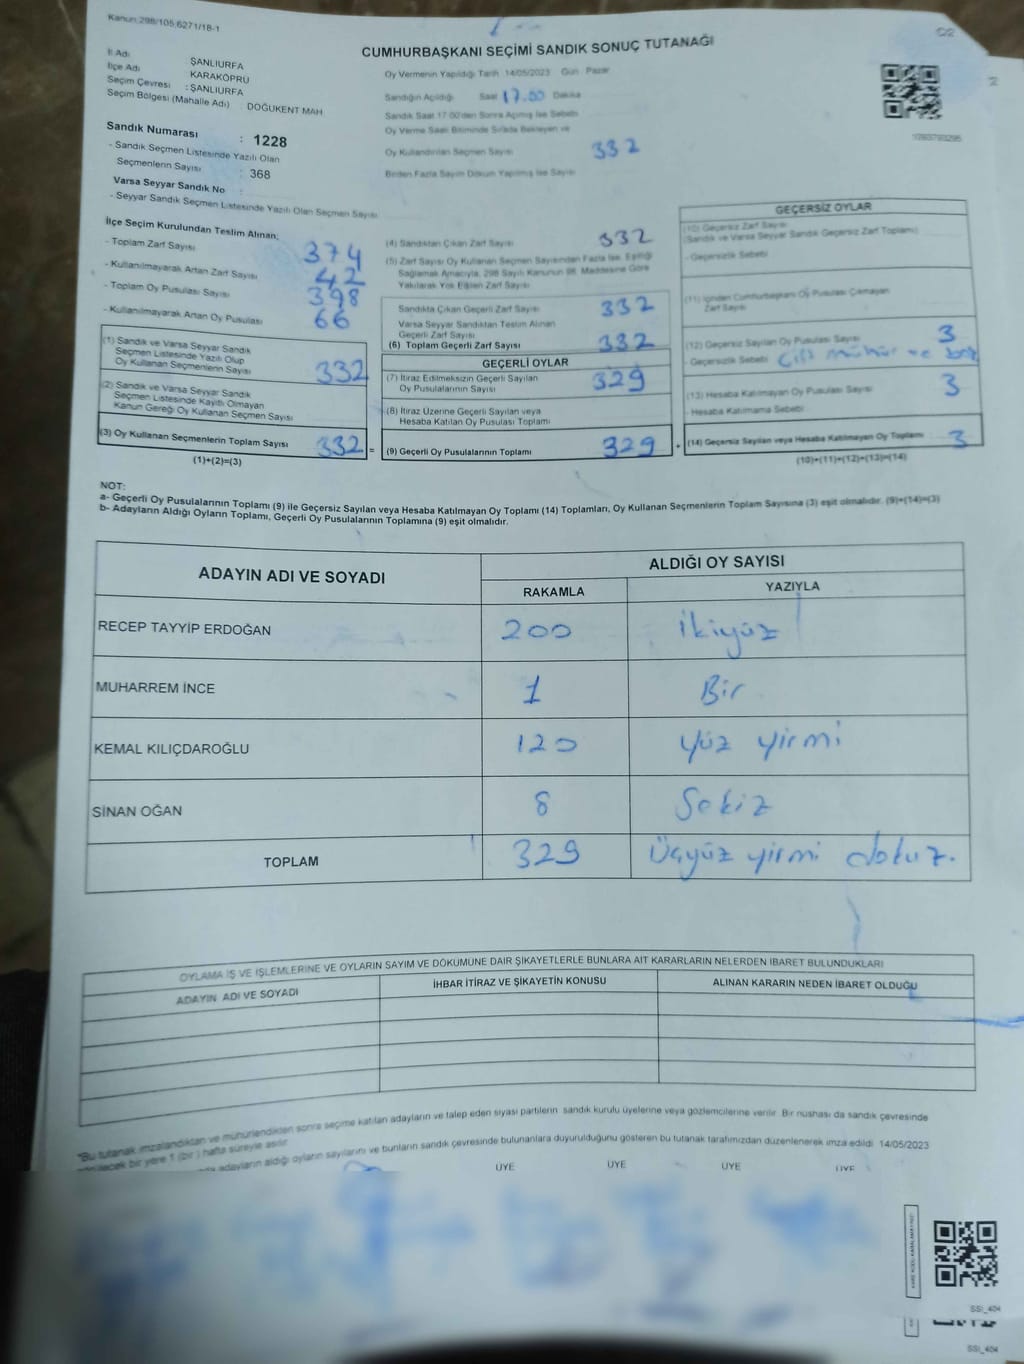 Kanun:298/105,6271/18-1
CUMHURBAŞKANI SEÇİMİ SANDIK SONUÇ TUTANAĞI
İl Adı ŞANLIURFA
İlçe Adı KARAKÖPRÜ
Seçim Çevresi : ŞANLIURFA
Seçim Bölgesi (Mahalle Adı) : DOĞUKENT MAH
Sandık Numarası : 1228
- Sandık Seçmen Listesinde Yazılı Olan
Seçmenlerin Sayısı : 368
Varsa Seyyar Sandık No :
- Seyyar Sandık Seçmen Listesinde Yazılı Olan Seçmen Sayısı
Oy Vermenin Yapıldığı Tarih 14/05/2023 Gün Pazar
Sandığın Açıldığı Saat 17.00 Dakika
Sandık Saat 17:00'den Sonra Açılmış İse Sebebi
Oy Verme Saati Bitiminde Sırada Bekleyen ve
Oy Kullandırılan Seçmen Sayısı 332
Birden Fazla Sayım Döküm Yapılmış İse Sayısı
İlçe Seçim Kurulundan Teslim Alınan;
- Toplam Zarf Sayısı 374
- Kullanılmayarak Artan Zarf Sayısı 42
- Toplam Oy Pusulası Sayısı 398
- Kullanılmayarak Artan Oy Pusulası 66
(1) Sandık ve Varsa Seyyar Sandık
Seçmen Listesinde Yazılı Olup
Oy Kullanan Seçmenlerin Sayısı 332
(2) Sandık ve Varsa Seyyar Sandık
Seçmen Listesinde Kayıtlı Olmayan
Kanun Gereği Oy Kullanan Seçmen Sayısı
(3) Oy Kullanan Seçmenlerin Toplam Sayısı 332 =
(1)+(2)=(3)
(4) Sandıktan Çıkan Zarf Sayısı 332
(5) Zarf Sayısı Oy Kullanan Seçmen Sayısından Fazla İse, Eşitliği
Sağlamak Amacıyla, 298 Sayılı Kanunun 98. Maddesine Göre
Yakılarak Yok Edilen Zarf Sayısı
Sandıkta Çıkan Geçerli Zarf Sayısı 332
Varsa Seyyar Sandıktan Teslim Alınan
Geçerli Zarf Sayısı
(6) Toplam Geçerli Zarf Sayısı 332
GEÇERLİ OYLAR
(7) İtiraz Edilmeksizin Geçerli Sayılan
Oy Pusulalarının Sayısı 329
(8) İtiraz Üzerine Geçerli Sayılan veya
Hesaba Katılan Oy Pusulası Toplamı
(9) Geçerli Oy Pusulalarının Toplamı 329 +
GEÇERSİZ OYLAR
(10) Geçersiz Zarf Sayısı
(Sandık ve Varsa Seyyar Sandık Geçersiz Zarf Toplamı)
- Geçersizlik Sebebi
(11) İçinden Cumhurbaşkanı Oy Pusulası Çıkmayan
Zarf Sayısı
(12) Geçersiz Sayılan Oy Pusulası Sayısı 3
- Geçersizlik Sebebi Çift mühür ve
(13) Hesaba Katılmayan Oy Pusulası Sayısı 3
- Hesaba Katılmama Sebebi
(14) Geçersiz Sayılan veya Hesaba Katılmayan Oy Toplamı 3
(10)+(11)+(12)+(13)=(14)
NOT:
a- Geçerli Oy Pusulalarının Toplamı (9) ile Geçersiz Sayılan veya Hesaba Katılmayan Oy Toplamı (14) Toplamları, Oy Kullanan Seçmenlerin Toplam Sayısına (3) eşit olmalıdır. (9)+(14)=(3)
b- Adayların Aldığı Oyların Toplamı, Geçerli Oy Pusulalarının Toplamına (9) eşit olmalıdır.
ADAYIN ADI VE SOYADI ALDIĞI OY SAYISI
RAKAMLA YAZIYLA
RECEP TAYYİP ERDOĞAN 200 İkiyüz
MUHARREM İNCE 1 Bir
KEMAL KILIÇDAROĞLU 120 yüz yirmi
SİNAN OĞAN 8 Sekiz
TOPLAM 329 Üçyüz yirmi dokuz.
OYLAMA İŞ VE İŞLEMLERİNE VE OYLARIN SAYIM VE DÖKÜMÜNE DAİR ŞİKAYETLERLE BUNLARA AİT KARARLARIN NELERDEN İBARET BULUNDUKLARI
ADAYIN ADI VE SOYADI İHBAR İTİRAZ VE ŞİKAYETİN KONUSU ALINAN KARARIN NEDEN İBARET OLDUĞU
"Bu tutanak imzalandıktan ve mühürlendikten sonra seçime katılan adayların ve talep eden siyasi partilerin sandık kurulu üyelerine veya gözlemcilerine verilir. Bir nüshası da sandık çevresinde
bir yere 1 (bir) hafta süreyle asılır.
adayların aldığı oyların sayılarını ve bunların sandık çevresinde bulunanlara duyurulduğunu gösteren bu tutanak tarafımızdan düzenlenerek imza edildi. 14/05/2023
ÜYE ÜYE ÜYE ÜYE
SSI_404
SSI_404